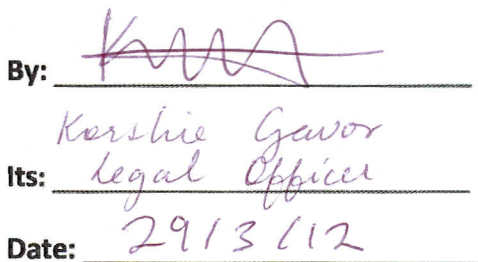 By:
Korshie Gavor
Its: Legal Officer
Date: 29/3/12